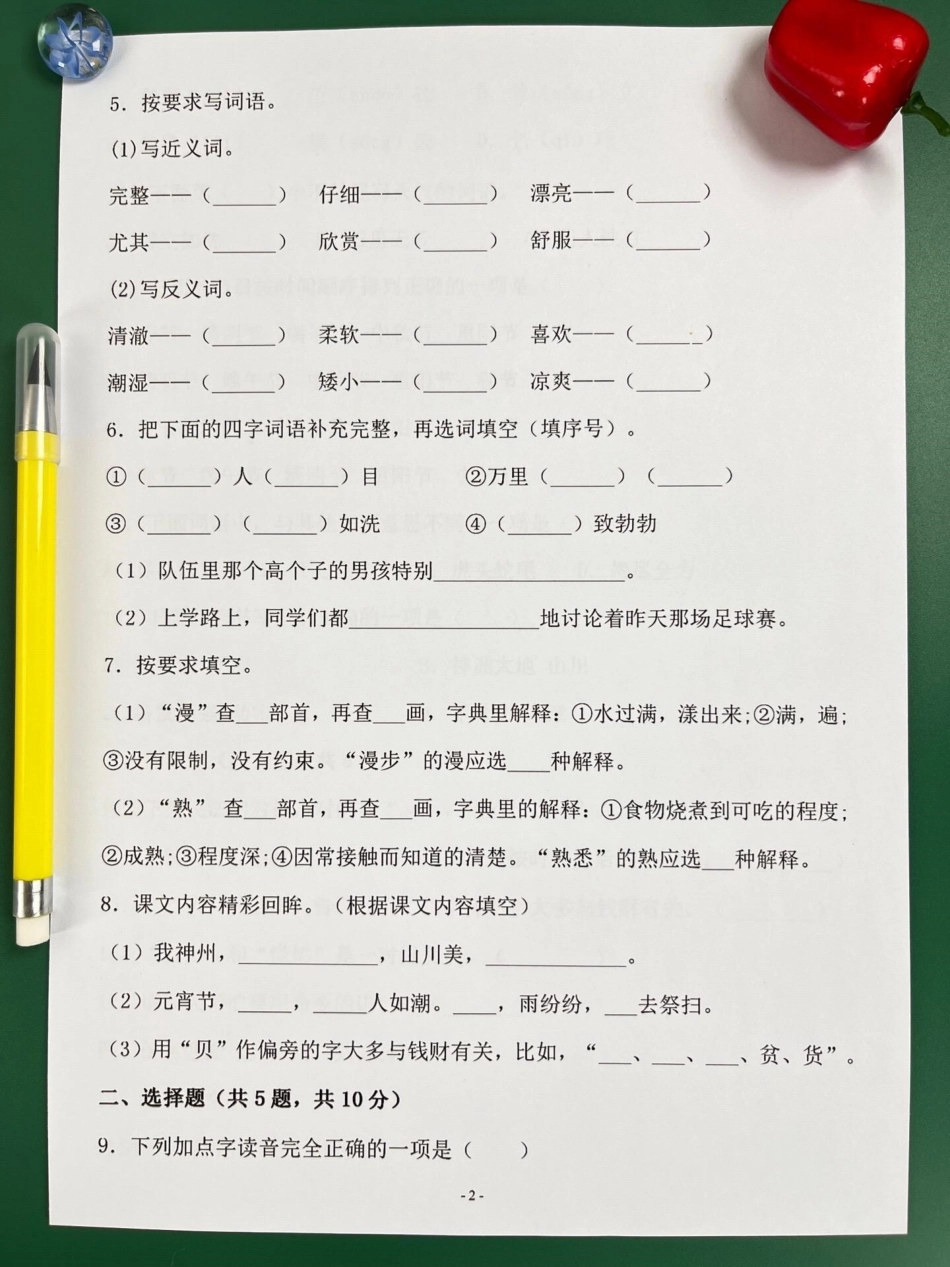 5. 按要求写词语。
(1)写近义词。
完整——（______） 仔细——（______） 漂亮——（______）
尤其——（______） 欣赏——（______） 舒服——（______）
(2)写反义词。
清澈——（______） 柔软——（______） 喜欢——（______）
潮湿——（______） 矮小——（______） 凉爽——（______）
6. 把下面的四字词语补充完整，再选词填空（填序号）。
①（______）人（______）目 ②万里（______）（______）
③（______）（______）如洗 ④（______）致勃勃
（1）队伍里那个高个子的男孩特别__________________。
（2）上学路上，同学们都__________________地讨论着昨天那场足球赛。
7. 按要求填空。
（1）“漫”查___部首，再查___画，字典里解释：①水过满，漾出来;②满，遍;
③没有限制，没有约束。“漫步”的漫应选____种解释。
（2）“熟” 查___部首，再查___画，字典里的解释：①食物烧煮到可吃的程度;
②成熟;③程度深;④因常接触而知道的清楚。“熟悉”的熟应选___种解释。
8. 课文内容精彩回眸。（根据课文内容填空）
（1）我神州，_____________，山川美，_____________。
（2）元宵节，_____，_____人如潮。____，雨纷纷，___去祭扫。
（3）用“贝”作偏旁的字大多与钱财有关，比如，“___、___、___、贫、货”。
二、选择题（共5题，共10分）
9. 下列加点字读音完全正确的一项是（ ）
-2-